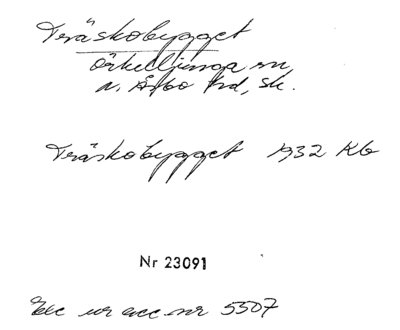 Träskobygget
Örkelljunga sn
N. Åsbo hd, Sk.
Träskobygget 1932 Kb
Nr 23091
Exc ur acc nr 5507